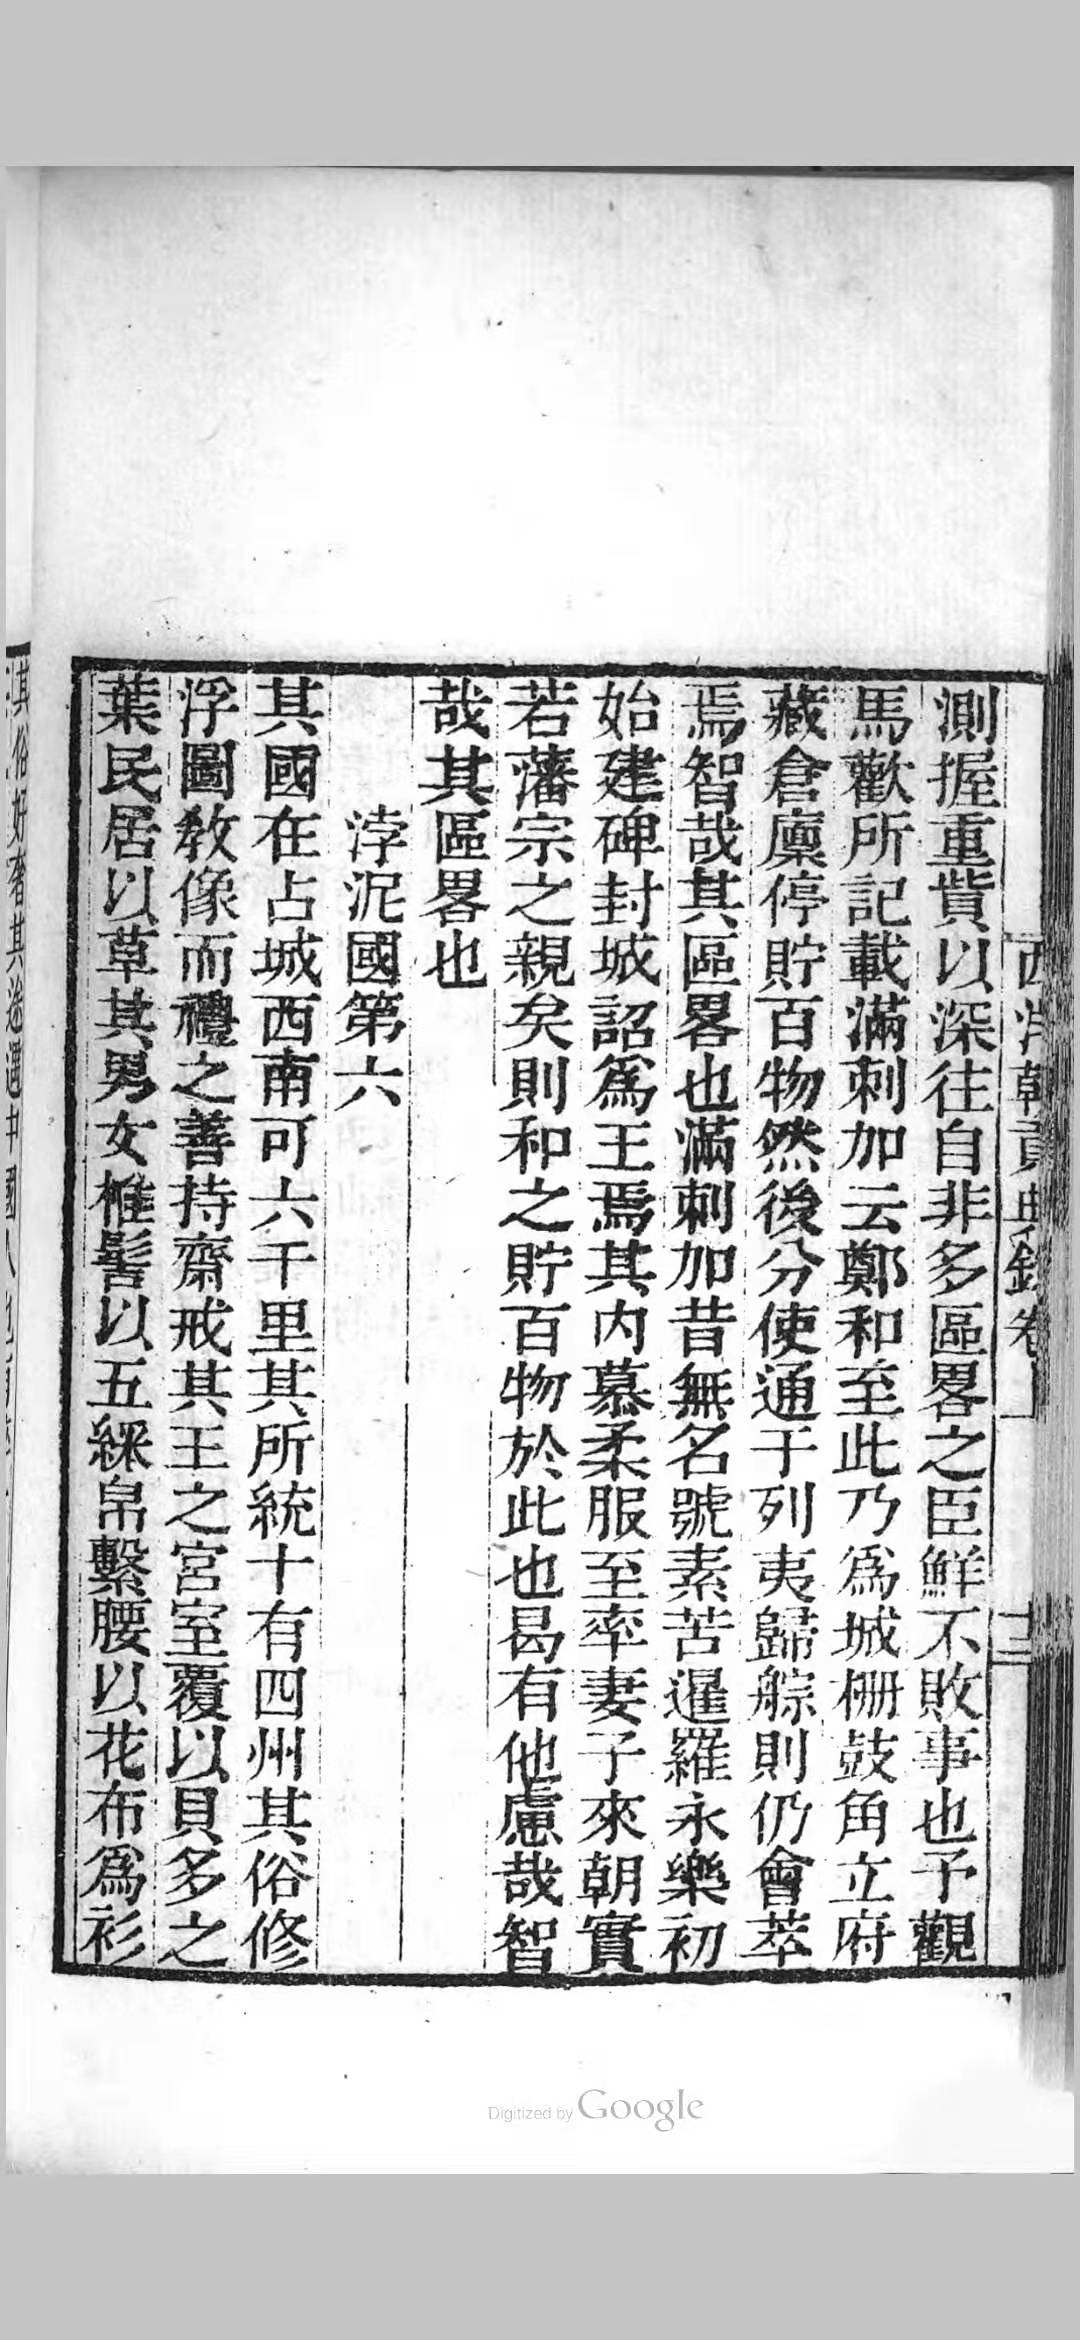 西洋朝貢典錄卷上
十三
測握重貲以深往自非多區畧之臣鮮不敗事也予觀
馬歡所記載滿剌加云鄭和至此乃爲城柵鼓角立府
藏倉廩停貯百物然後分使通于列夷歸䑸則仍會萃
焉智哉其區畧也滿剌加昔無名號素苦暹羅永樂初
始建碑封城詔爲王焉其內慕柔服至率妻子來朝實
若藩宗之親矣則和之貯百物於此也曷有他慮哉智
哉其區畧也
浡泥國第六
其國在占城西南可六千里其所統十有四州其俗修
浮圖教像而禮之善持齋戒其王之宮室覆以貝多之
葉民居以草其男女椎髻以五綵帛繫腰以花布爲衫
其俗好奢其
Digitized by Google